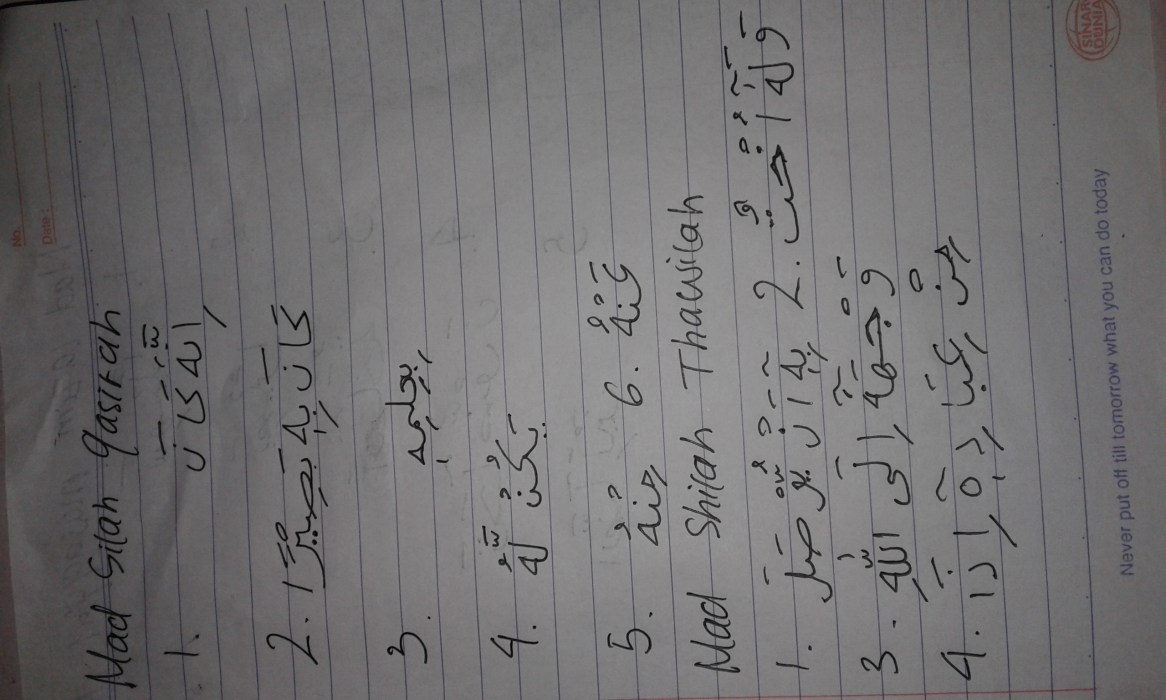 No.
Date :
Mad Silah qasirah
1. اِنَّهٗ كَانَ
2. كَانَ بِهٖ بَصِيْرًا
3. بِعِلْمِهٖ
4. يَكُنْ لَّهٗ
5. مِنْهُ 6. عَنْهُ
Mad Shilah Thawilah
1. بِهٖٓ اَنْ يُّوْصَلَ 2. وَلَهٗٓ اُخْتٌ
3. وَجْهَهٗٓ اِلَى اللّٰهِ
4. مِنْ عِبَادِهٖٓ اِذَا
SINAR DUNIA
Never put off till tomorrow what you can do today